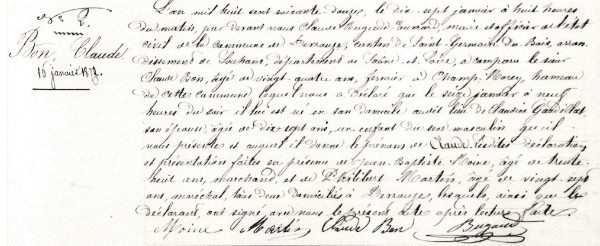 Bon, Claude
16 janvier 1872
L'an mil huit cent soixante douze, le dix-sept janvier à huit heures
du matin, par devant nous Claude Bugaud, maire et officier de l'état
civil de la commune de Serrouge, Canton de Saint-Germain du Bois, arron
dissement de Louhans, département de Saône-et-Loire, a comparu le sieur
Claude Bon, âgé de vingt-quatre ans, fermier à Champ-, hameau
de cette commune lequel nous a déclaré que le seize janvier à neuf
heures du soir il lui est né en son domicile audit lieu de Claudine
son épouse, âgée de dix sept ans, un enfant du sexe masculin qu'il
nous présente et auquel il donne le prénom de Claude, lesdites déclaration
et présentation faites en présence de Jean-Baptiste Moine, âgé de trente
huit ans, marchand, et de Philibert Martin, âgé de vingt-sept
ans, maréchal, tous deux domiciliés à Serrouge, lesquels, ainsi que le
déclarant, ont signé avec nous le présent acte après lecture faite
Moine Martin Claude Bon Bugaud